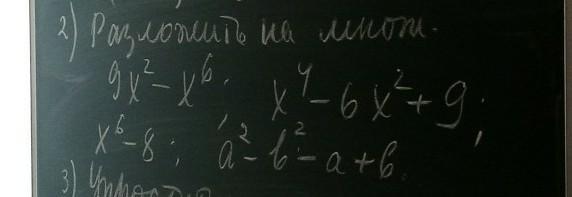 2) Разложить на множ.
9x² - x⁶; x⁴ - 6x² + 9;
x⁶ - 8; a² - b² - a + b.
3)